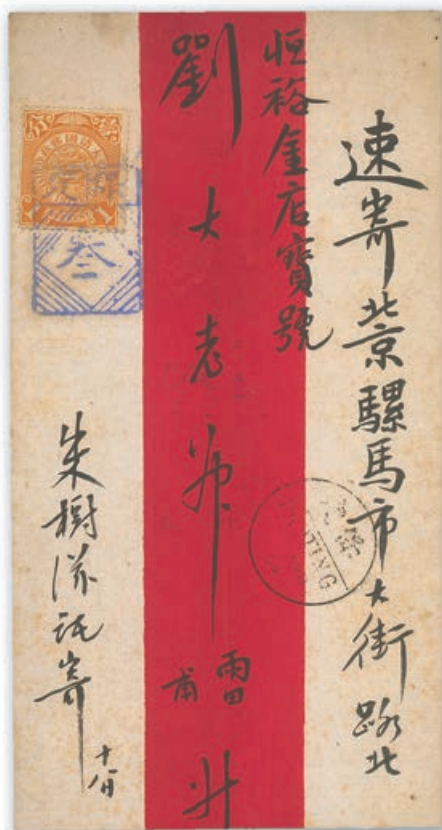 速寄北京騾馬市大街路北
恒裕金店寶號
劉大老爺
雨田
甫
升
朱樹
託寄
十一日
叁
TING